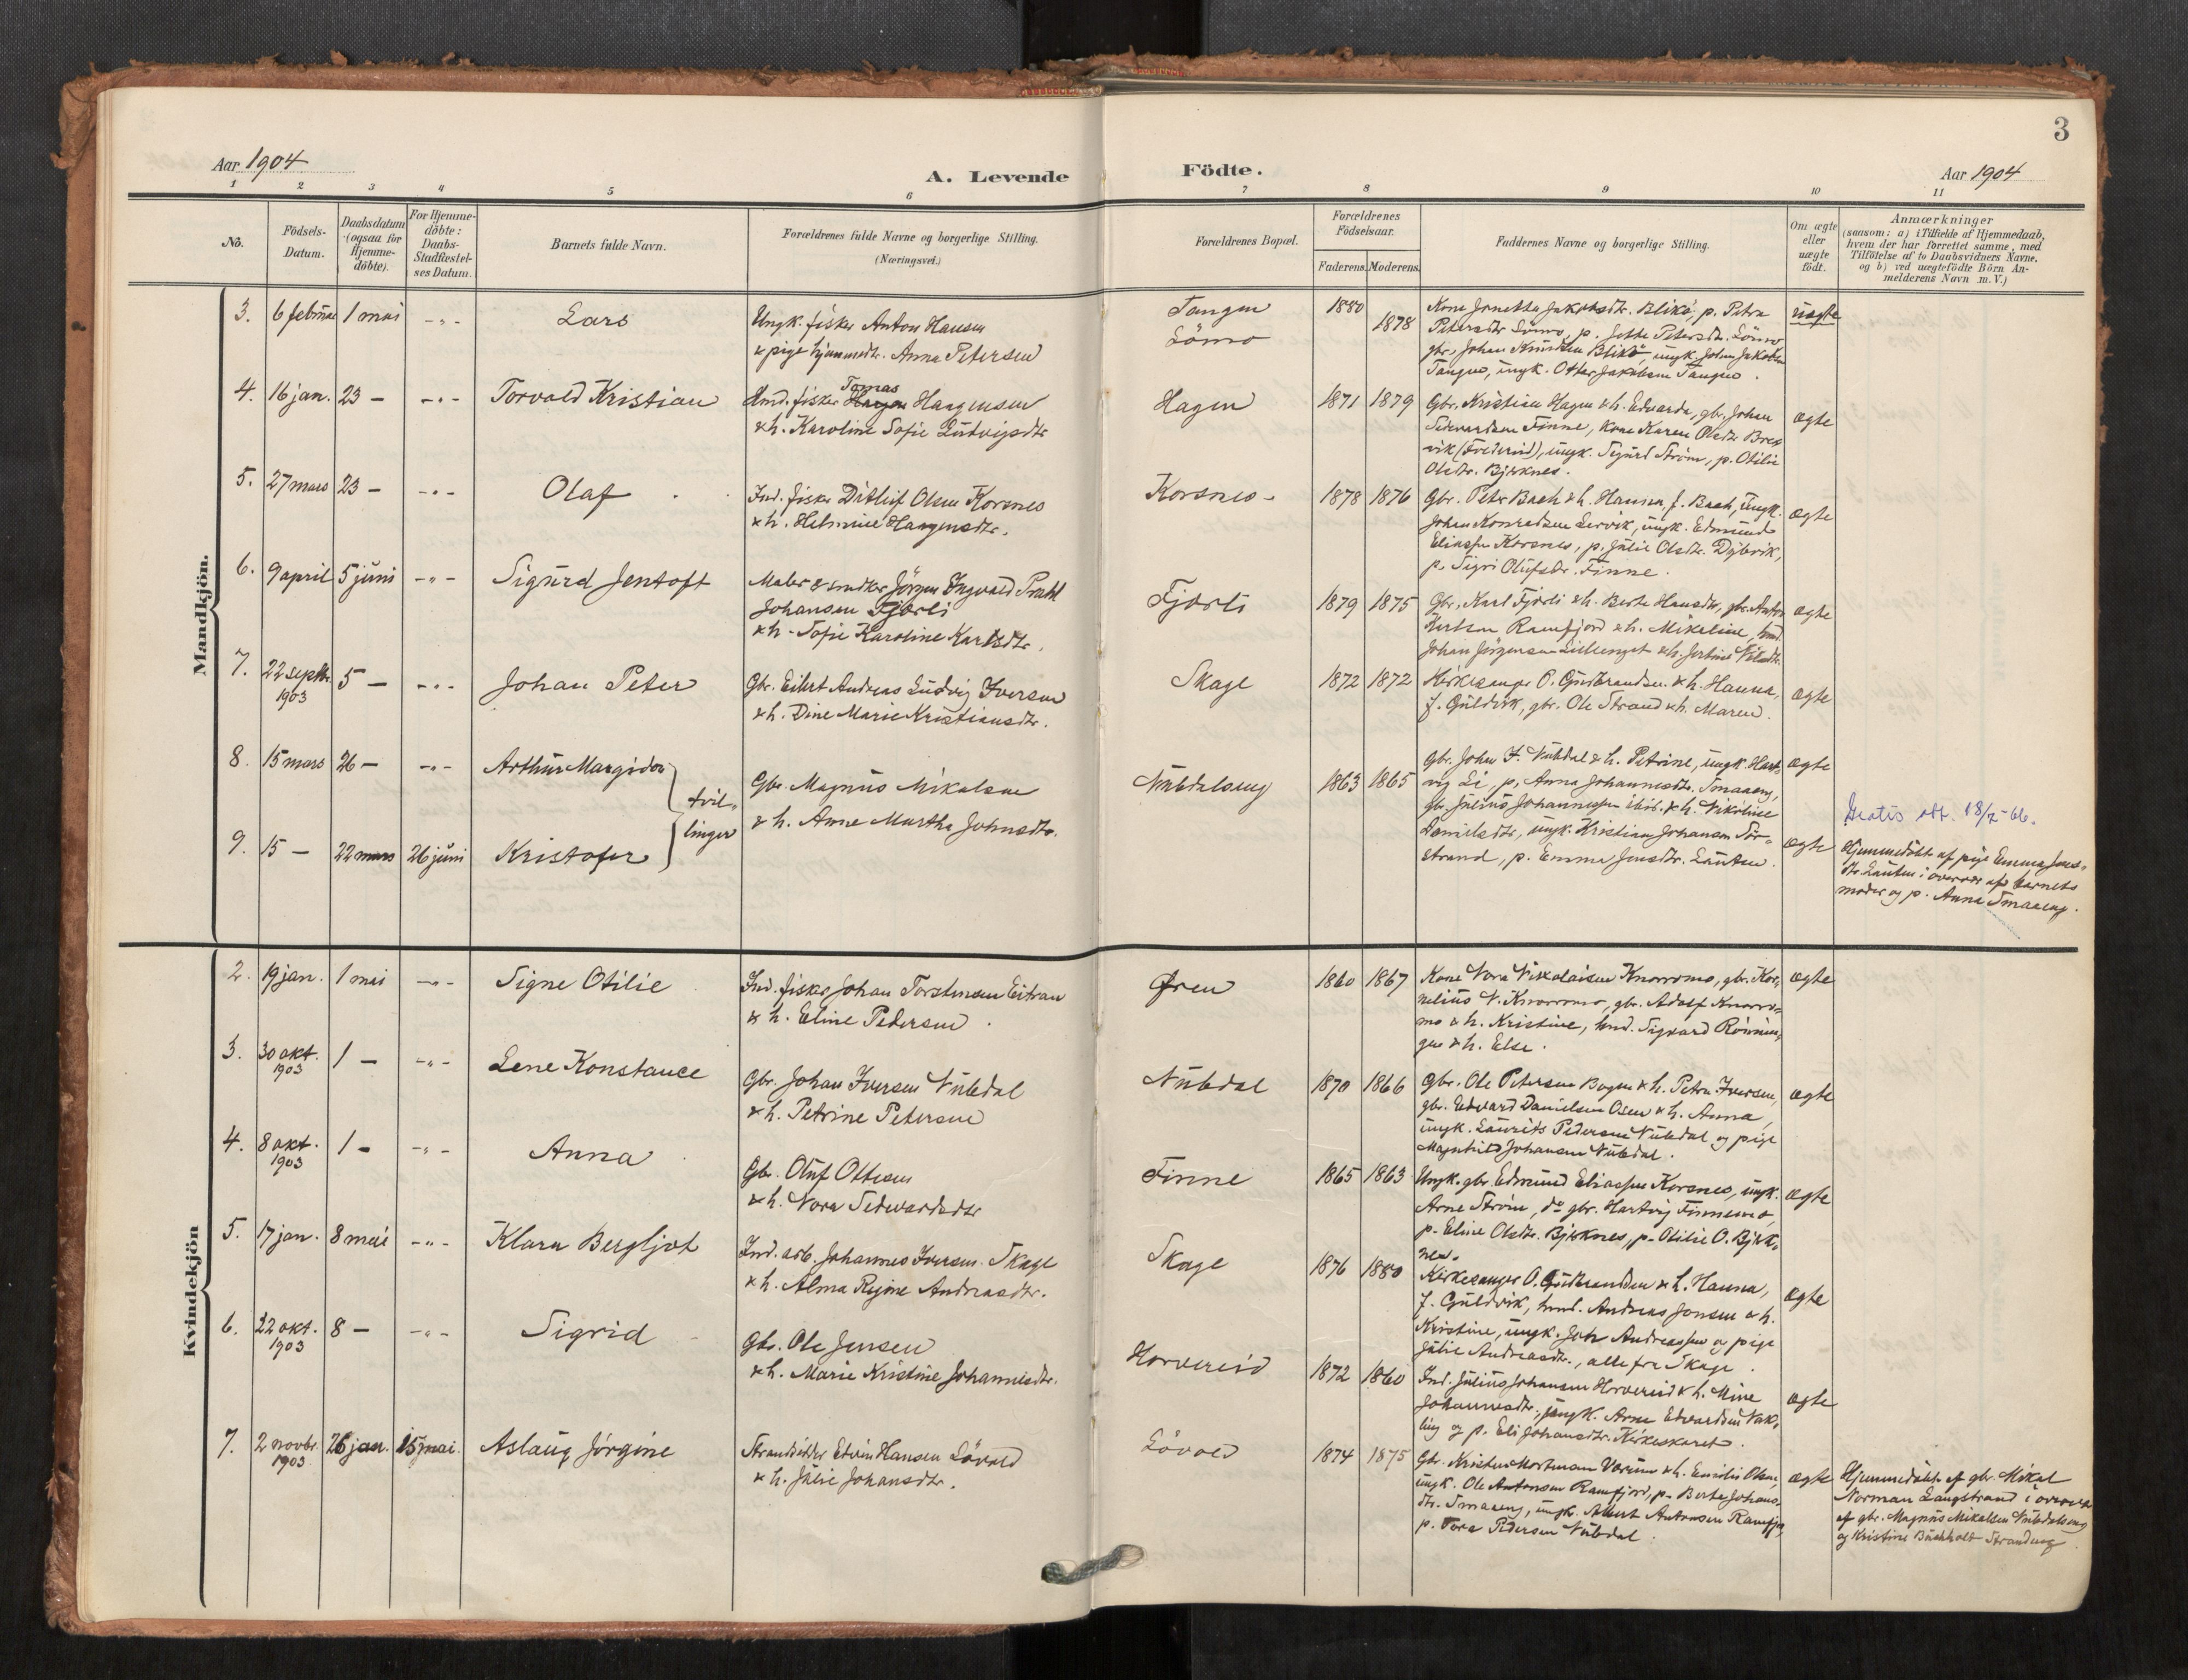 3
Aar 1904
A. Levende Födte.
Aar 1904
1 2 3 4 5 6 7 8 9 10 11
No.
Födsels-
Datum.
Daabsdatum
(ogsaa for
Hjemme-
döbte).
For Hjemme-
döbte:
Daabs-
Stadfæstel-
ses Datum.
Barnets fulde Navn.
Forældrenes fulde Navne og borgerlige Stilling.
(Næringsvei.)
Forældrenes Bopæl.
Forældrenes
Födselsaar.
Faderens. Moderens.
Faddernes Navne og borgerlige Stilling.
Om ægte
eller
uægte
födt.
Anmærkninger
(saasom: a) i Tilfælde af Hjemmedaab,
hvem der har forrettet samme, med
Tilföielse af to Daabsvidners Navne.
og b) ved uægtefödte Börn An-
melderens Navn m.V.)
Mandkjön.
3. 6 februar 1 mai -"- Lars
Ungk. fisker Anton Hansen
& pige hjemmedtr. Anna Petersen
Tangen
Lömo
1880 1878
Kone Jonetta Jakobsdtr. Blikö, p. Petra
Petersdtr Lömo, p. Jette Petersdtr. Lömo
gbr. Johan Knudsen Blikö, ungk. Johan Jakobsen
Tangen, ungk. Otter Jakobsen Tangen.
uægte
4. 16 jan. 23 - -"- Torvald Kristian
Tomas
Hmd. fisker Haagen Haagensen
& h. Karoline Sofie Ludvigsdtr
Hagen
1871 1879
Gbr. Kristian Hagen & h. Edvarda, gbr. Johan
Sedvardsen Finne, kone Karen Olsdtr. Brek
vik (Foldereid), ungk. Sigurd Ström, p. Otilie
Olsdtr. Bjerknes.
ægte
5. 27 mars 23 - -"- Olaf
Ind. fisker Ditluf Olsen Korsnes
& h. Helmine Haagensdtr.
Korsnes
1878 1876
Gbr. Peter Bach & h. Hanna f. Bach, ungk.
Johan Konradsen Lervik, ungk. Edmund
Eliassen Korsnes, p. Julie Olsdtr. Dybvik,
p. Sigri Olufsdtr. Finne.
ægte
6. 9 april 5 juni -"- Sigurd Jentoft
Maler & snedker Jörgen Ingvald Prahl
Johansen Fjærli
& h. Sofie Karoline Karlsdtr.
Fjærli
1879 1875
Gbr. Karl Fjærli & h. Berte Hansdtr, gbr. Anton
Ramfjord & h. Mikaline, hmd.
Johan Jörgensen Lillenget & h. Jertine Nilsdtr.
ægte
7. 22 septbr. 1903 5 - -"- Johan Peter
Gbr. Eilert Andreas Ludvig Iversen
& h. Dine Marie Kristiansdtr.
Skage
1872 1872
Kirkesanger O. Gudbrandsen & h. Hanna,
f. Guldvik, gbr. Ole Strand & h. Maren.
ægte
8. 15 mars 26 - -"- Arthur Margido
tvil-
linger
Gbr. Magnus Mikalsen
& h. Anne Martha Johnsdtr.
Nubdalseng
1863 1865
Gbr. Johan I. Nubdal & h. Petrine, ungk. Hart-
vig Li, p. Anna Johannesdtr. Smaaeng,
gbr. Julius Johannessen ibid. & h. Nikoline
Danielsdtr, ungk. Kristian Johansen Sör-
strand, p. Emma Jensdtr. Lauten.
ægte
9. 15 - 22 mars 26 juni Kristofer
ægte
Gratis att. 18/7-66.
Hjemmedöbt af pige Emma Jens-
dtr. Lauten i overvær af barnets
moder og p. Anna Smaaeng.
Kvindekjön
2. 19 jan. 1 mai -"- Signe Otilie
Ind. fisker Johan Torstensen Eitran
& h. Eline Pedersen.
Øren
1860 1867
Kone Nora Nikolaisen Knorromo, gbr. Kor-
nelius N. Knorromo, gbr. Adolf Knorro-
mo & h. Kristine, hmd. Sigvard Rönnin-
gen & h. Else.
ægte
3. 30 okt. 1903 1 - -"- Lene Konstance
Gbr. Johan Iversen Nubdal
& h. Petrine Petersen
Nubdal
1870 1866
Gbr. Ole Petersen Bogen & h. Petra Iversen,
gbr. Edvard Danielsen Osen & h. Anna,
ungk. Laurits Pedersen Nubdal og pige
Magnhild Johansen Nubdal.
ægte
4. 8 okt. 1903 1 - -"- Anna
Gbr. Oluf Ottesen
& h. Nora Sedvardsdtr
Finne
1865 1863
Ungk. gbr. Edmund Eliassen Korsnes, ungk.
Arne Ström, do gbr. Hartvig Finnemo,
p. Eline Olsdtr. Bjerknes, p. Otilie O. Bjerk-
nes.
ægte
5. 17 jan. 8 mai -"- Klara Bergljot
Ind. arb. Johannes Iversen Skage
& h. Alma Regine Andreasdtr.
Skage
1876 1880
Kirkesanger O. Gudbrandsen & h. Hanna,
f. Guldvik, hmd. Andreas Jonsen & h.
Kristine, ungk. Joh Andreassen og pige
Julie Andreasdtr., alle fra Skage.
ægte
6. 22 okt. 1903 8 - -"- Sigrid
Gbr. Ole Jensen
& h. Marie Kristine Johannesdtr.
Horvereid
1872 1860
Ind. Julius Johansen Horvereid & h. Mine
Johannesdtr., ungk. Arne Edvardsen Vak-
ling og p. Eli Johansdtr. Kirkeskaret.
ægte
7. 2 novbr. 1903 26 jan. 15 mai. Aslaug Jörgine
Strandsidder Edvin Hansen Lövold
& h. Julie Johansdtr.
Lövold
1874 1875
Gbr. Kristen Mortensen Varum & h. Emilie Olsen,
ungk. Ole Antonsen Ramfjord, p. Berte Johans-
dtr. Smaaeng, ungk. Albert Antonsen Ramfjo
p. Tora Pedersen Nubdal.
ægte
Hjemmedöbt af gbr. Mikal
Norman Langstrand i overvær
af gbr. Magnus Mikalsen Nubdalseng
og Kristine Buchholdt Strandeng.